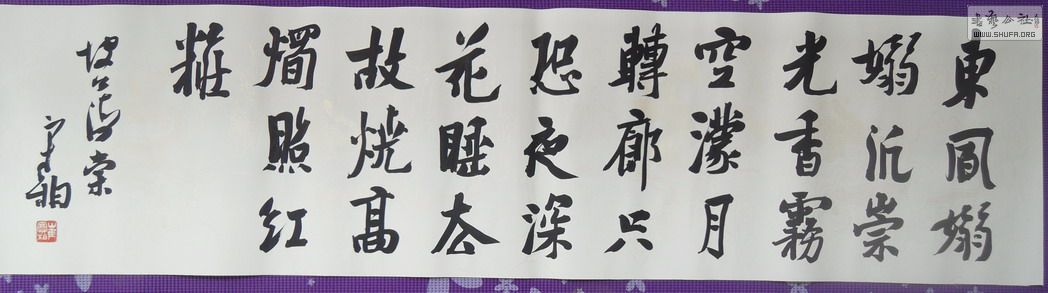 東風嫋
嫋汎崇
光香霧
空濛月
轉廊只
恐夜深
花睡去
故燒高
燭照红
粧
坡公海棠
書藝公社
WWW.SHUFA.ORG